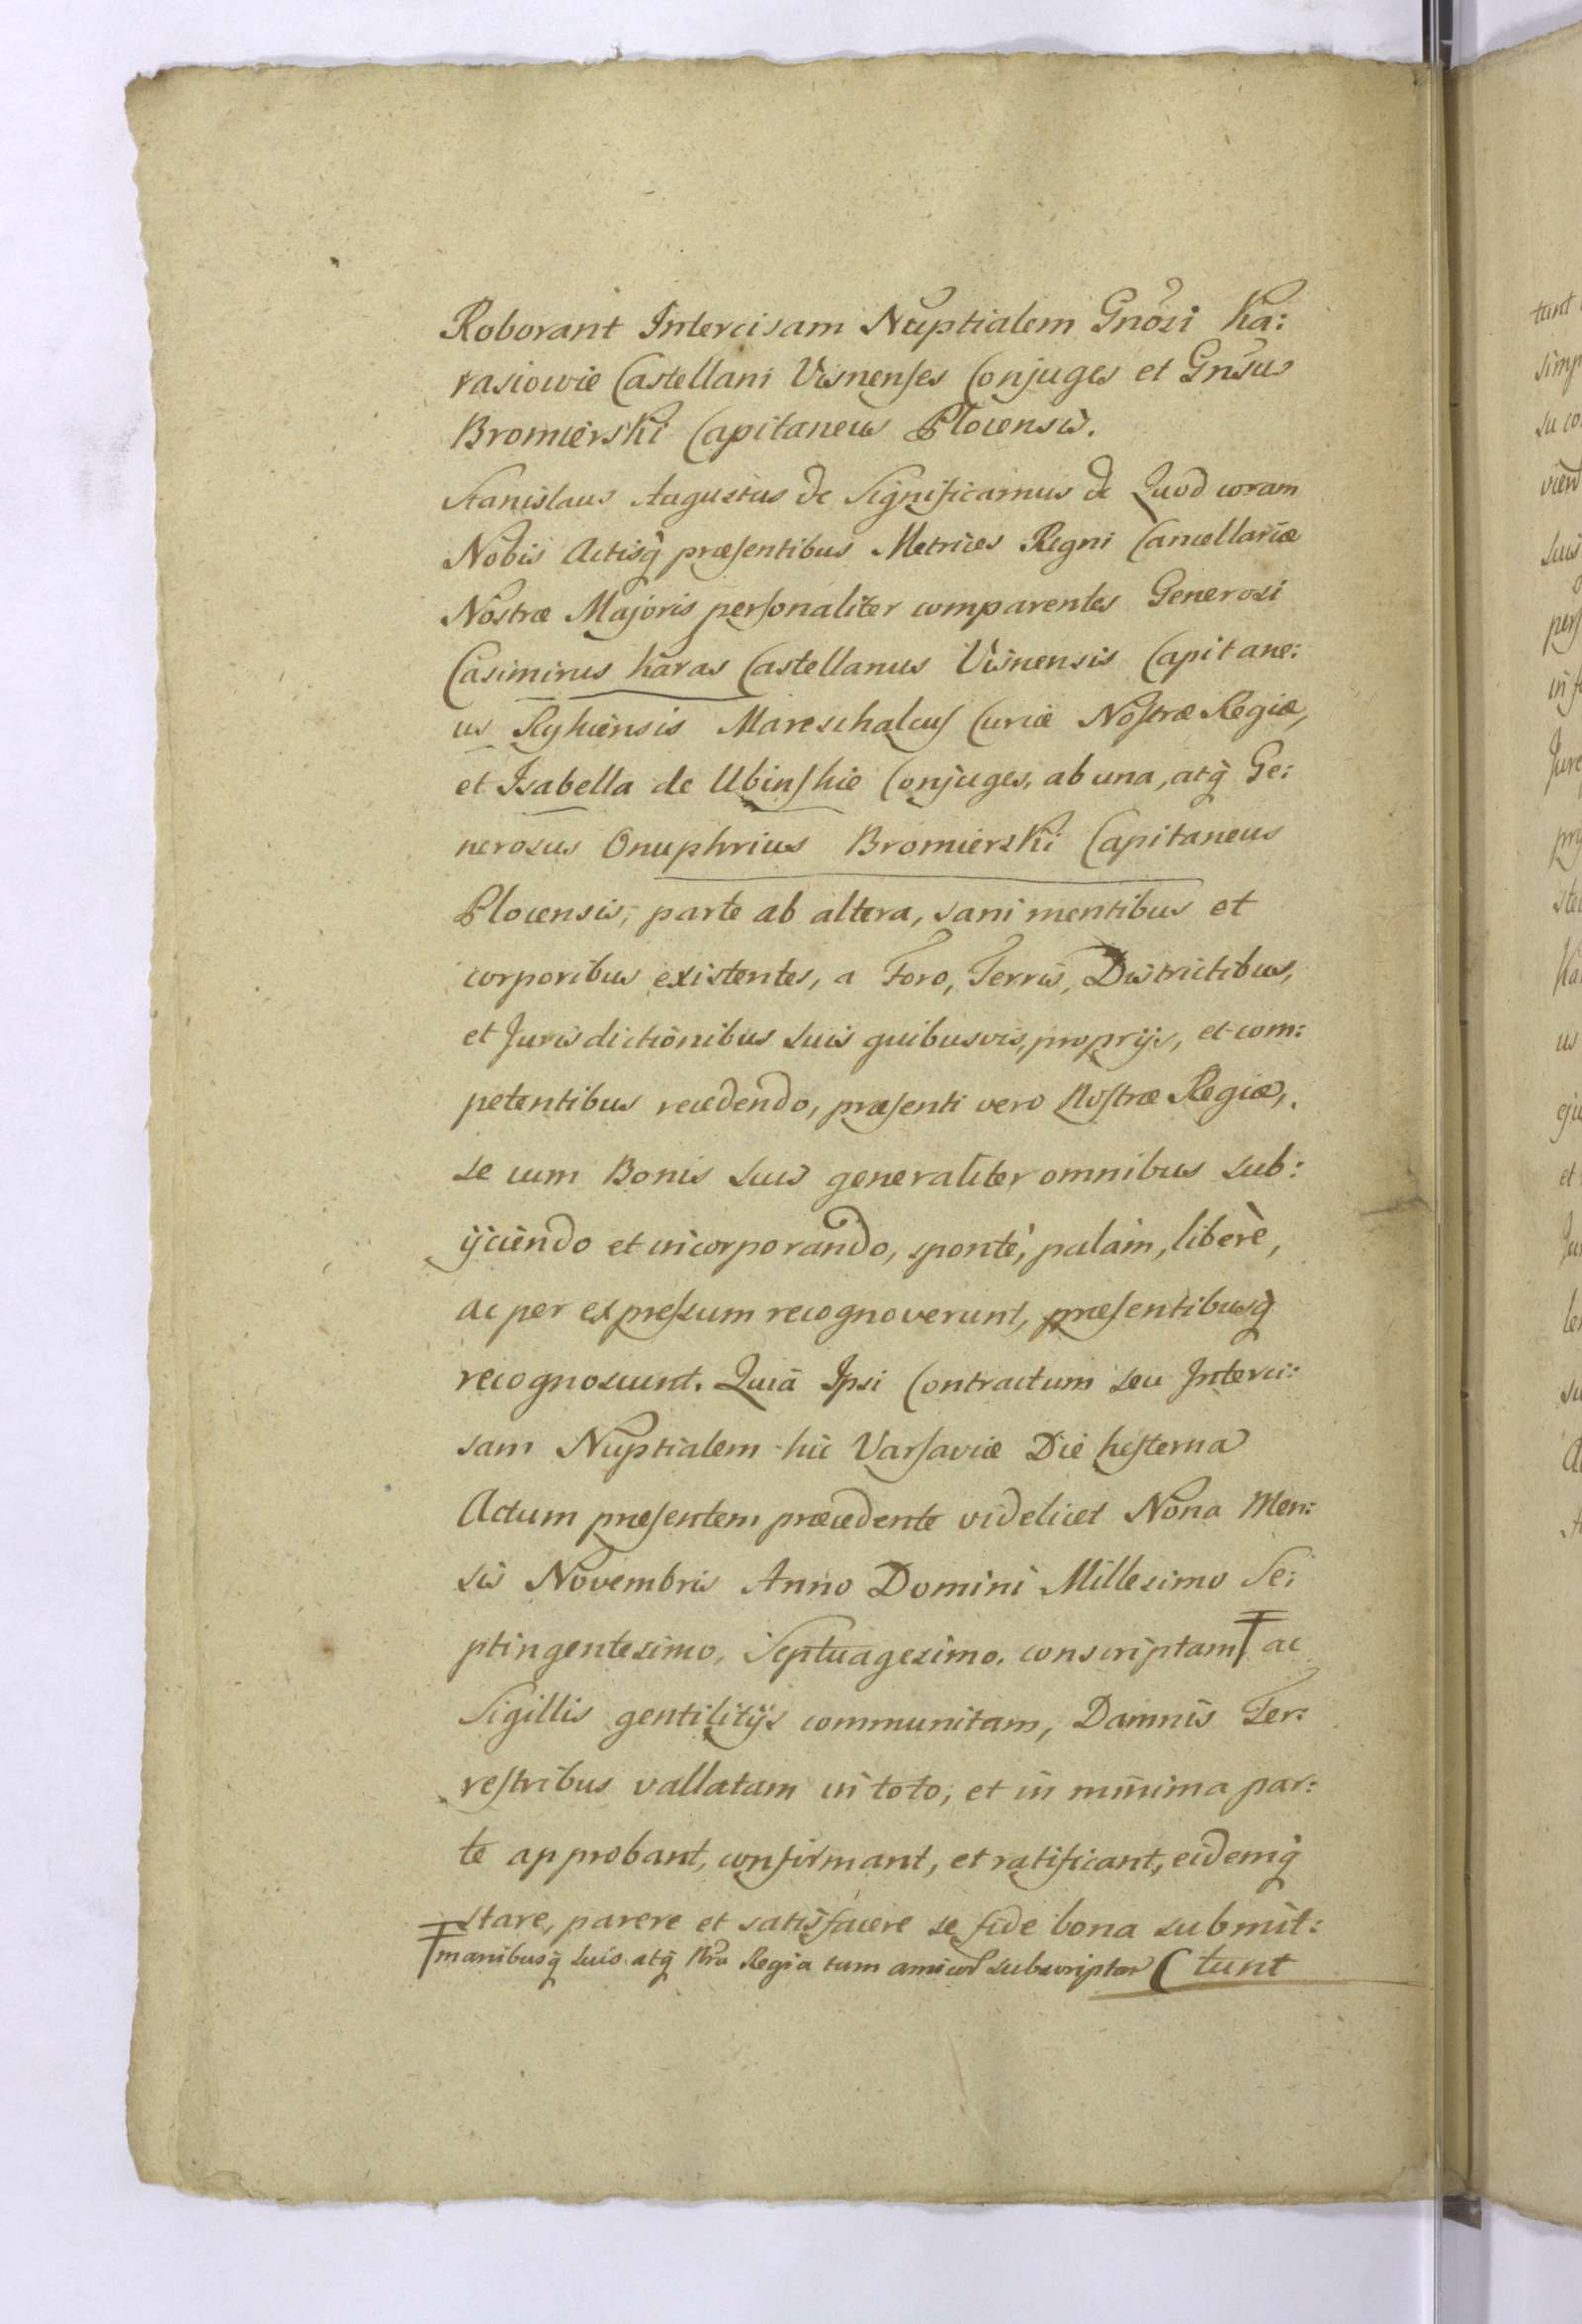 Roborant Intercisam Nuptialem Gnősi Ka:
rasiowie Castellani Visnenses Conjuges et Gnsus
Bromierski Capitaneus Plocensis.
Stanislaus Augustus &c Significamus &c Quod coram
Nobis Actisq̀ præsentibus Metrices Regni Cancellariæ
Nostræ Majoris personaliter comparentes Generosi
Casimirus Karas Castellanus Visnensis Capitane:
us Rykiensis Mareschalcus Curiæ Nostræ Regiæ,
et Isabella de Ubinskie Conjuges, ab una, atq̀ Ge:
nerosus Onuphrius Bromierski Capitaneus
Plocensis, parte ab altera, sani mentibus et
corporibus existentes, a Foro, Terris, Districtibus,
et Jurisdictionibus suis quibusvis, proprijs, et com:
petentibus recedendo, præsenti vero Nostræ Regiæ,
se cum Bonis suis generaliter omnibus sub:
ijciendo et incorporando, sponte, palam, liberè,
ac per expressum recognoverunt, præsentibusq̀
recognoscunt. Quia Ipsi Contractum seu Interci:
sam Nuptialem hic Varsaviæ Die hesterna
Actum præsentem præcedente videlicet Nona Men:
sis Novembris Anno Domini Millesimo Se:
ptingentesimo, Septuagesimo. conscriptam ac
Sigillis gentilitijs communitam, Damnis Ter:
restribus vallatam in toto, et in minima par:
te approbant, confirmant, et ratificant, eidemq̀
stare, parere et satisfacere se fide bona submit:
manibusq̀ suis atq̀ Nra Regia tum amicor subscriptam (tunt